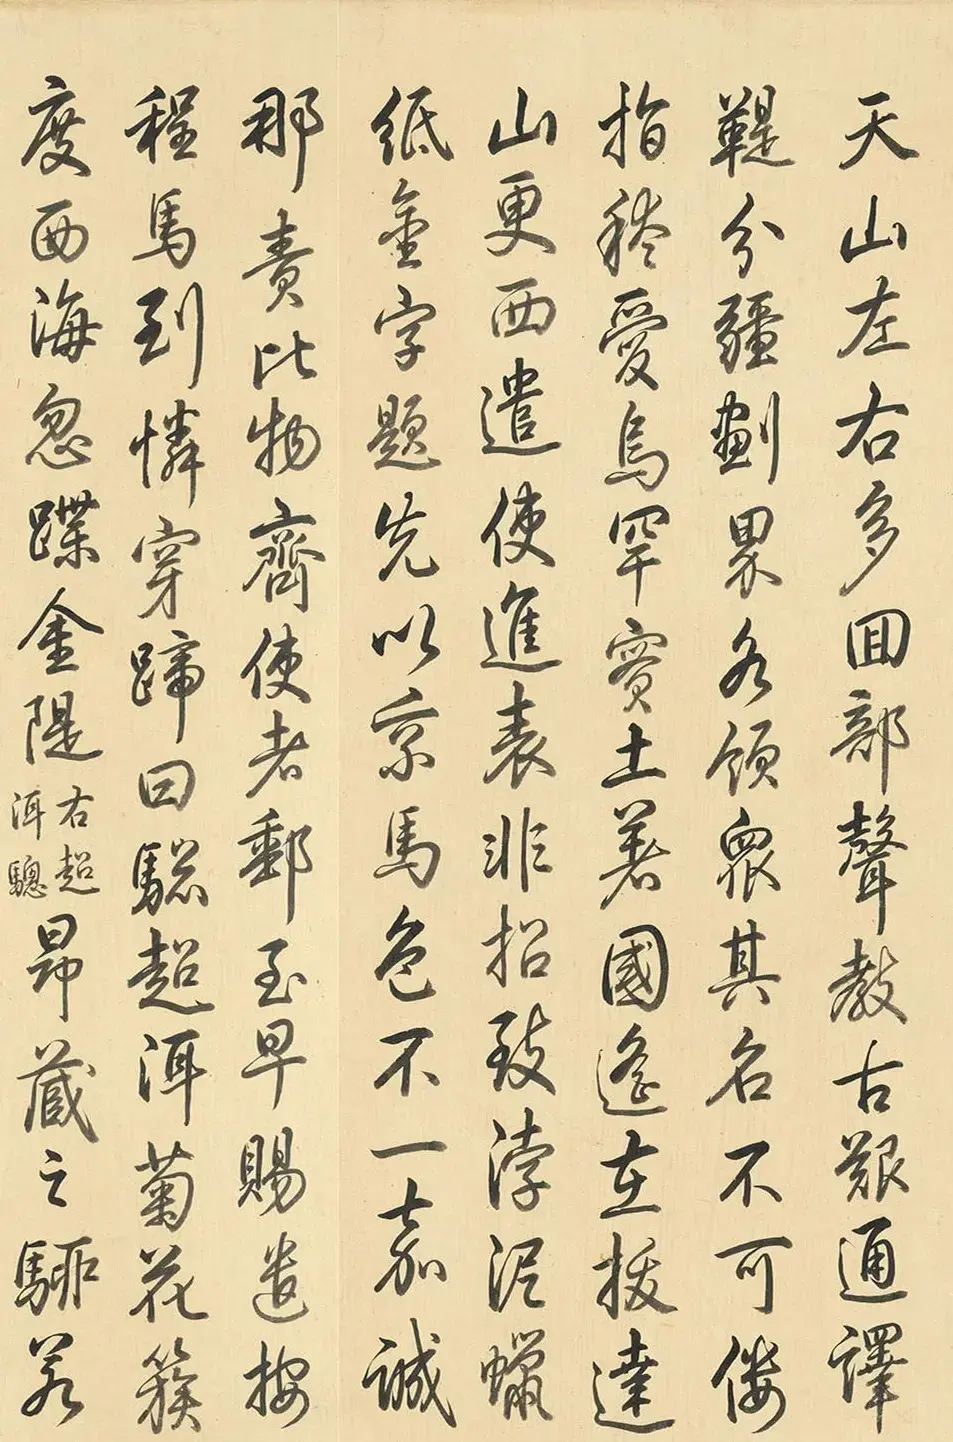 天山左右多回部聲教古艱通譯
鞮分疆劃界各領眾其名不可僂
指稽愛烏罕實土著國遙在拔達
山更西遣使進表非招致渟泥蠟
紙金字題先以京馬色不一嘉誠
那責比物齊使者郵至早賜遣按
程馬到憐穿蹄曰驄超洱菊花簇
度西海忽蹀金隄右超
洱驄昴藏之驅若